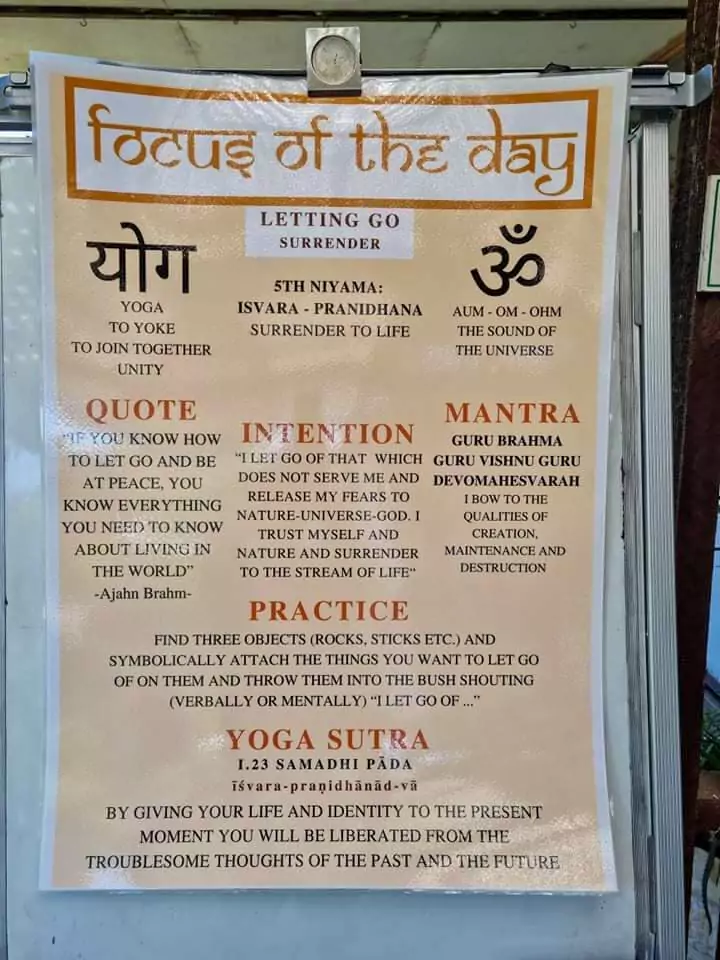 focus of the day
LETTING GO
SURRENDER
योग
YOGA
TO YOKE
TO JOIN TOGETHER
UNITY
5TH NIYAMA:
ISVARA - PRANIDHANA
SURRENDER TO LIFE
ॐ
AUM - OM - OHM
THE SOUND OF
THE UNIVERSE
QUOTE
"IF YOU KNOW HOW
TO LET GO AND BE
AT PEACE, YOU
KNOW EVERYTHING
YOU NEED TO KNOW
ABOUT LIVING IN
THE WORLD"
-Ajahn Brahm-
INTENTION
"I LET GO OF THAT WHICH
DOES NOT SERVE ME AND
RELEASE MY FEARS TO
NATURE-UNIVERSE-GOD. I
TRUST MYSELF AND
NATURE AND SURRENDER
TO THE STREAM OF LIFE"
MANTRA
GURU BRAHMA
GURU VISHNU GURU
DEVOMAHESVARAH
I BOW TO THE
QUALITIES OF
CREATION,
MAINTENANCE AND
DESTRUCTION
PRACTICE
FIND THREE OBJECTS (ROCKS, STICKS ETC.) AND
SYMBOLICALLY ATTACH THE THINGS YOU WANT TO LET GO
OF ON THEM AND THROW THEM INTO THE BUSH SHOUTING
(VERBALLY OR MENTALLY) "I LET GO OF ..."
YOGA SUTRA
I.23 SAMADHI PĀDA
īśvara-praṇidhānād-vā
BY GIVING YOUR LIFE AND IDENTITY TO THE PRESENT
MOMENT YOU WILL BE LIBERATED FROM THE
TROUBLESOME THOUGHTS OF THE PAST AND THE FUTURE